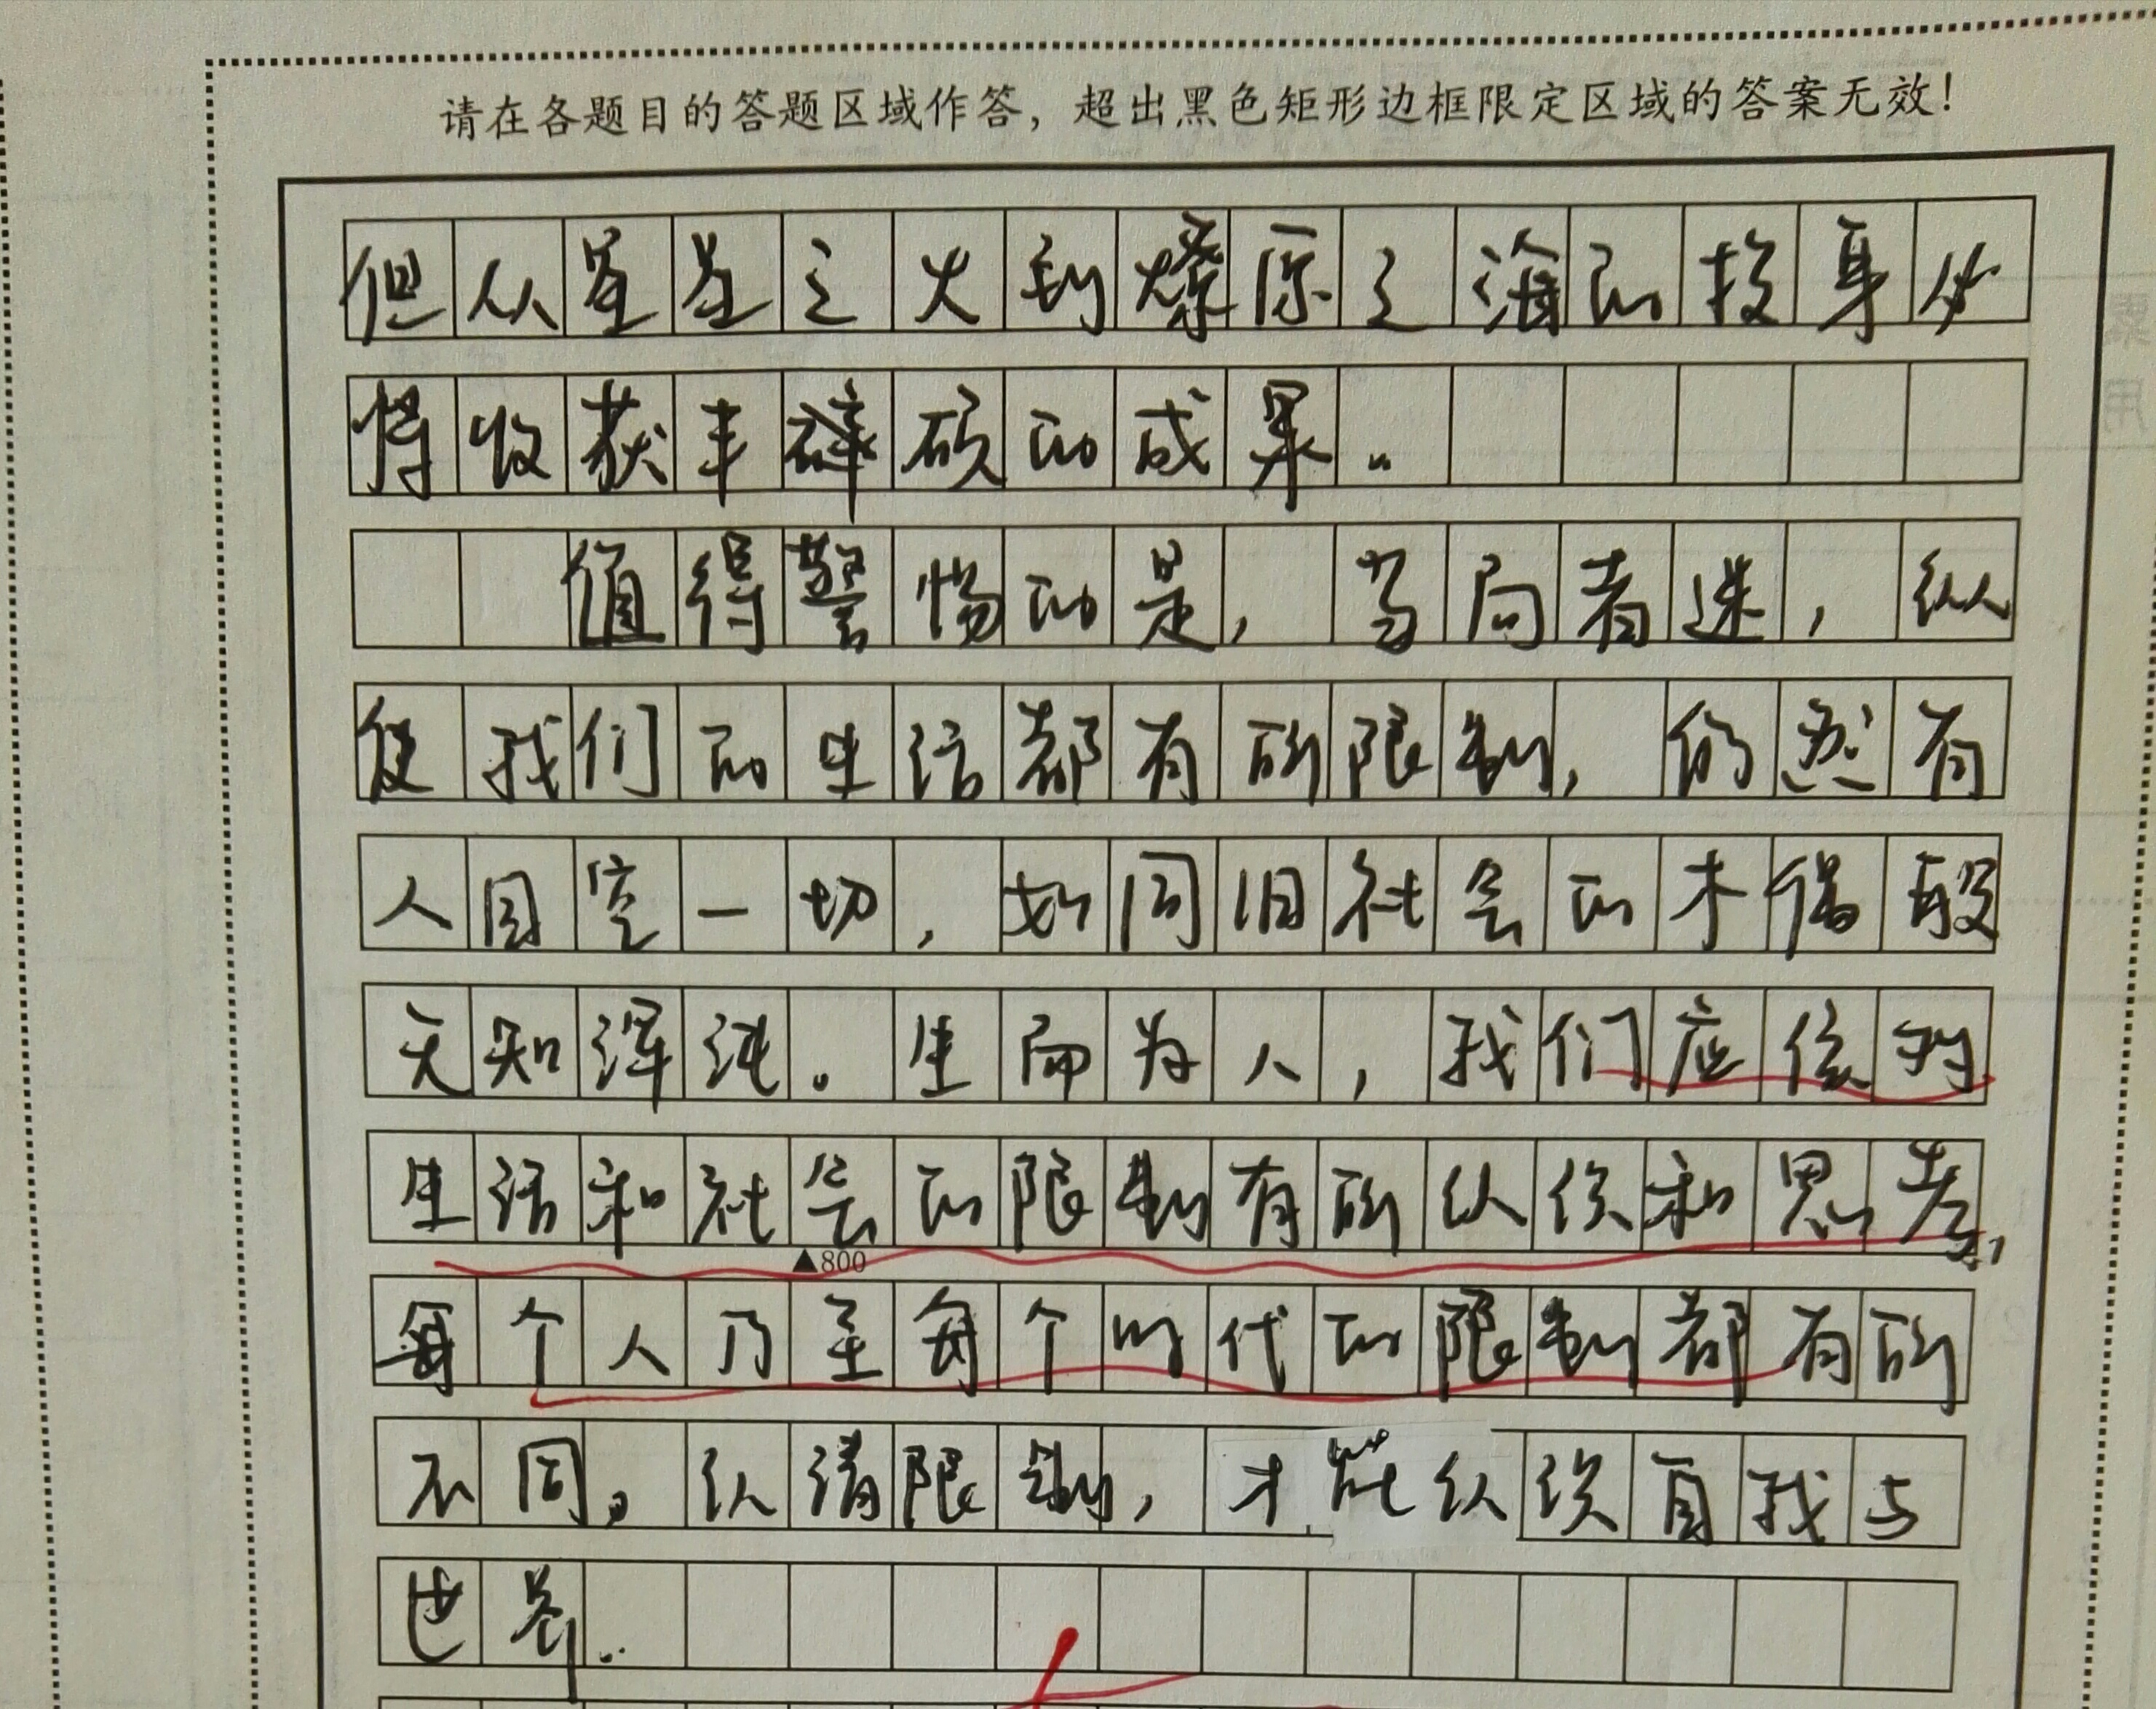 请在各题目的答题区域作答，超出黑色矩形边框限定区域的答案无效！
但从星星之火到燎原之海的投身必
将收获丰硕的成果。
值得警惕的是，当局者迷，纵
使我们的生活都有所限制，仍然有
人目空一切，如同旧社会的木偶般
无知浑沌。生而为人，我们应该对
生活和社会的限制有所认识和思考，
▲800
每个人乃至每个时代的限制都有所
不同。认清限制，才能认识自我与
世界。